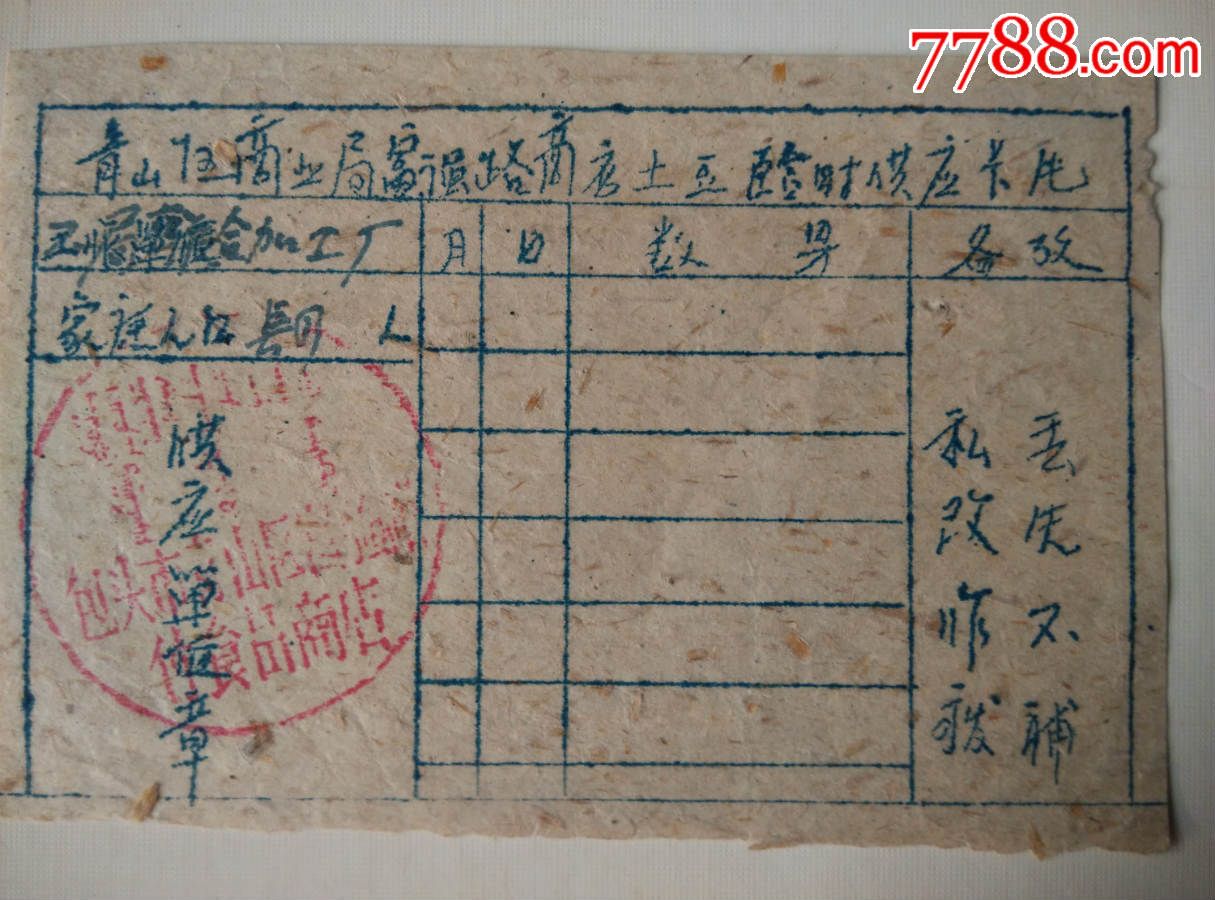 7788.com
青山区商业局富强路商店土豆临时供应卡片
加工厂 月 日 数量 备考
家庭人口 人
供应单位章
丢失不补
私改作废
包头市青山区
食品商店